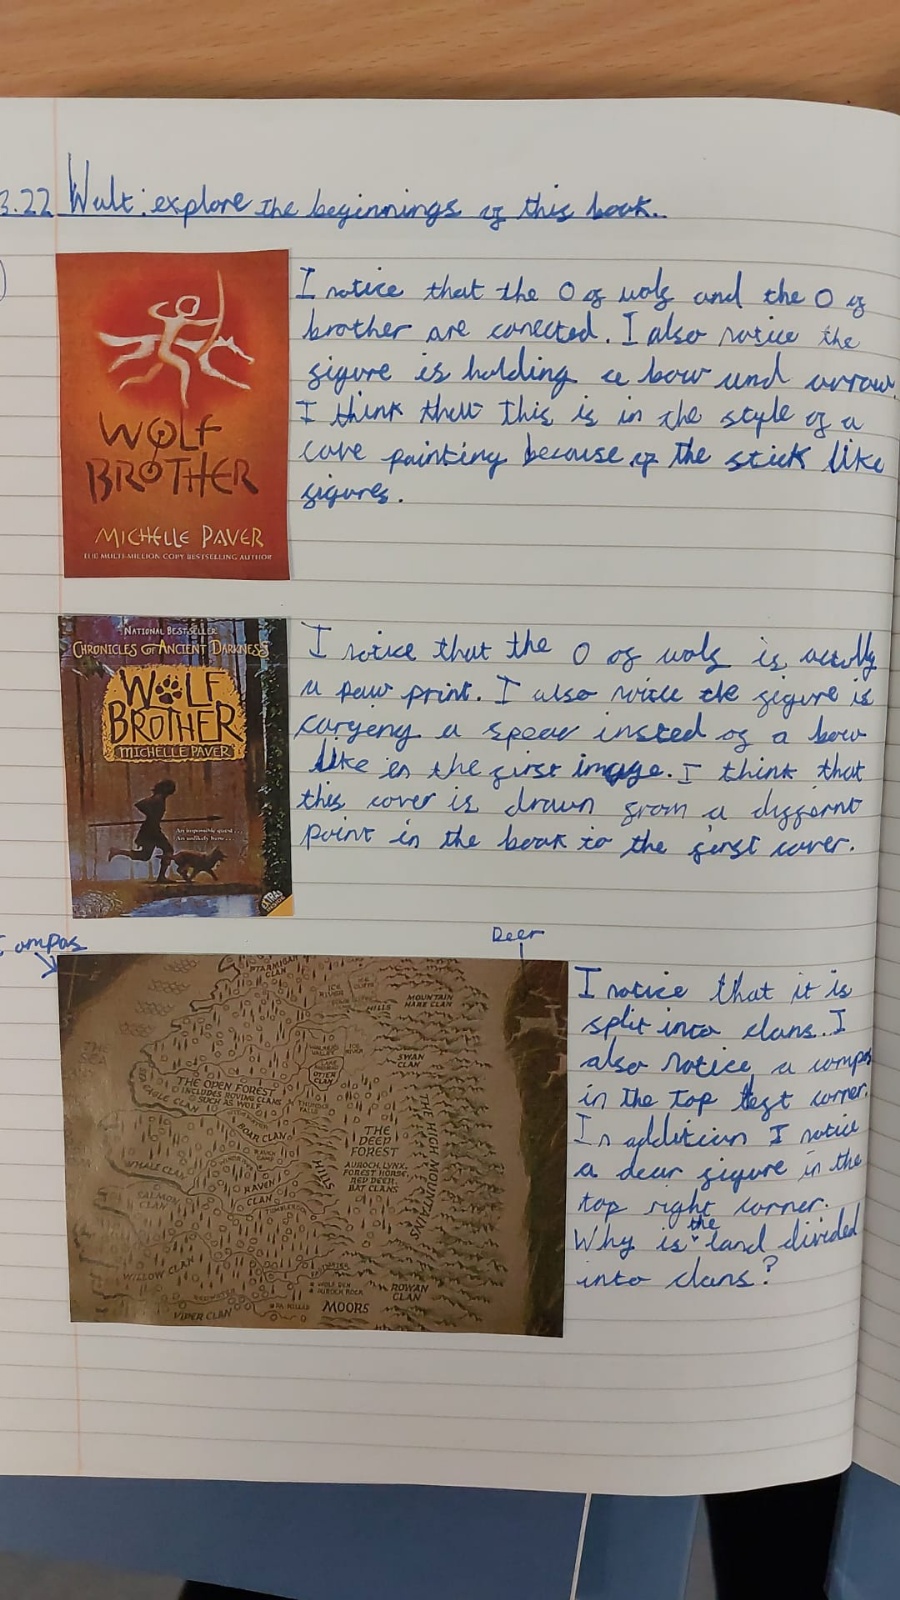 3.22 Walt: explore the beginnings of this book.
I notice that the O of wolf and the O of
brother are conected. I also notice the
figure is holding a bow and arrow.
I think that this is in the style of a
cave painting because of the stick like
figures.
WOLF
BROTHER
MICHELLE PAVER
THE MULTI-MILLION COPY BESTSELLING AUTHOR
I notice that the O of wolf is actully
a paw print. I also notice the figure is
caryeng a spear insted of a bow
like in the first image. I think that
this cover is drawn from a differnt
point in the book to the first cover.
NATIONAL BESTSELLER
CHRONICLES OF ANCIENT DARKNESS
WOLF
BROTHER
MICHELLE PAVER
An impossible quest...
An unlikely hero...
EXTRAS
Compas
Deer
I notice that it is
split into clans. I
also notice a compas
in the top left corner.
In addition I notice
a dear figure in the
top right corner.
Why is the land divided
into clans?
PTARMIGAN
CLAN
ICE
RIVER
HILLS
MOUNTAIN
HARE CLAN
SWAN
CLAN
OTTER
CLAN
THE OPEN FOREST
INCLUDES ROVING CLANS
SUCH AS WOLF
EAGLE CLAN
THUNDER
FALLS
BOAR CLAN
THE
DEEP
FOREST
AUROCH, LYNX,
FOREST HORSE,
RED DEER,
BAT CLANS
THE HIGH MOUNTAINS
HILLS
WHALE CLAN
RAVEN
CLAN
SALMON
CLAN
WILLOW CLAN
AUROCH ROCK
ROWAN
CLAN
VIPER CLAN
MOORS